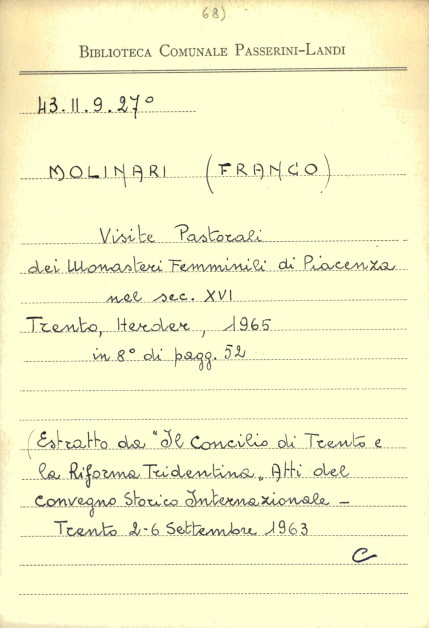 68)
BIBLIOTECA COMUNALE PASSERINI-LANDI
43.II.9.27°
MOLINARI (FRANCO)
Visite Pastorali
dei Monasteri Femminili di Piacenza
nel sec. XVI
Trento, Herder, 1965
in 8° di pagg. 52
(Estratto da "Il Concilio di Trento e
la Riforma Tridentina„ Atti del
Convegno Storico Internazionale –
Trento 2-6 Settembre 1963
C